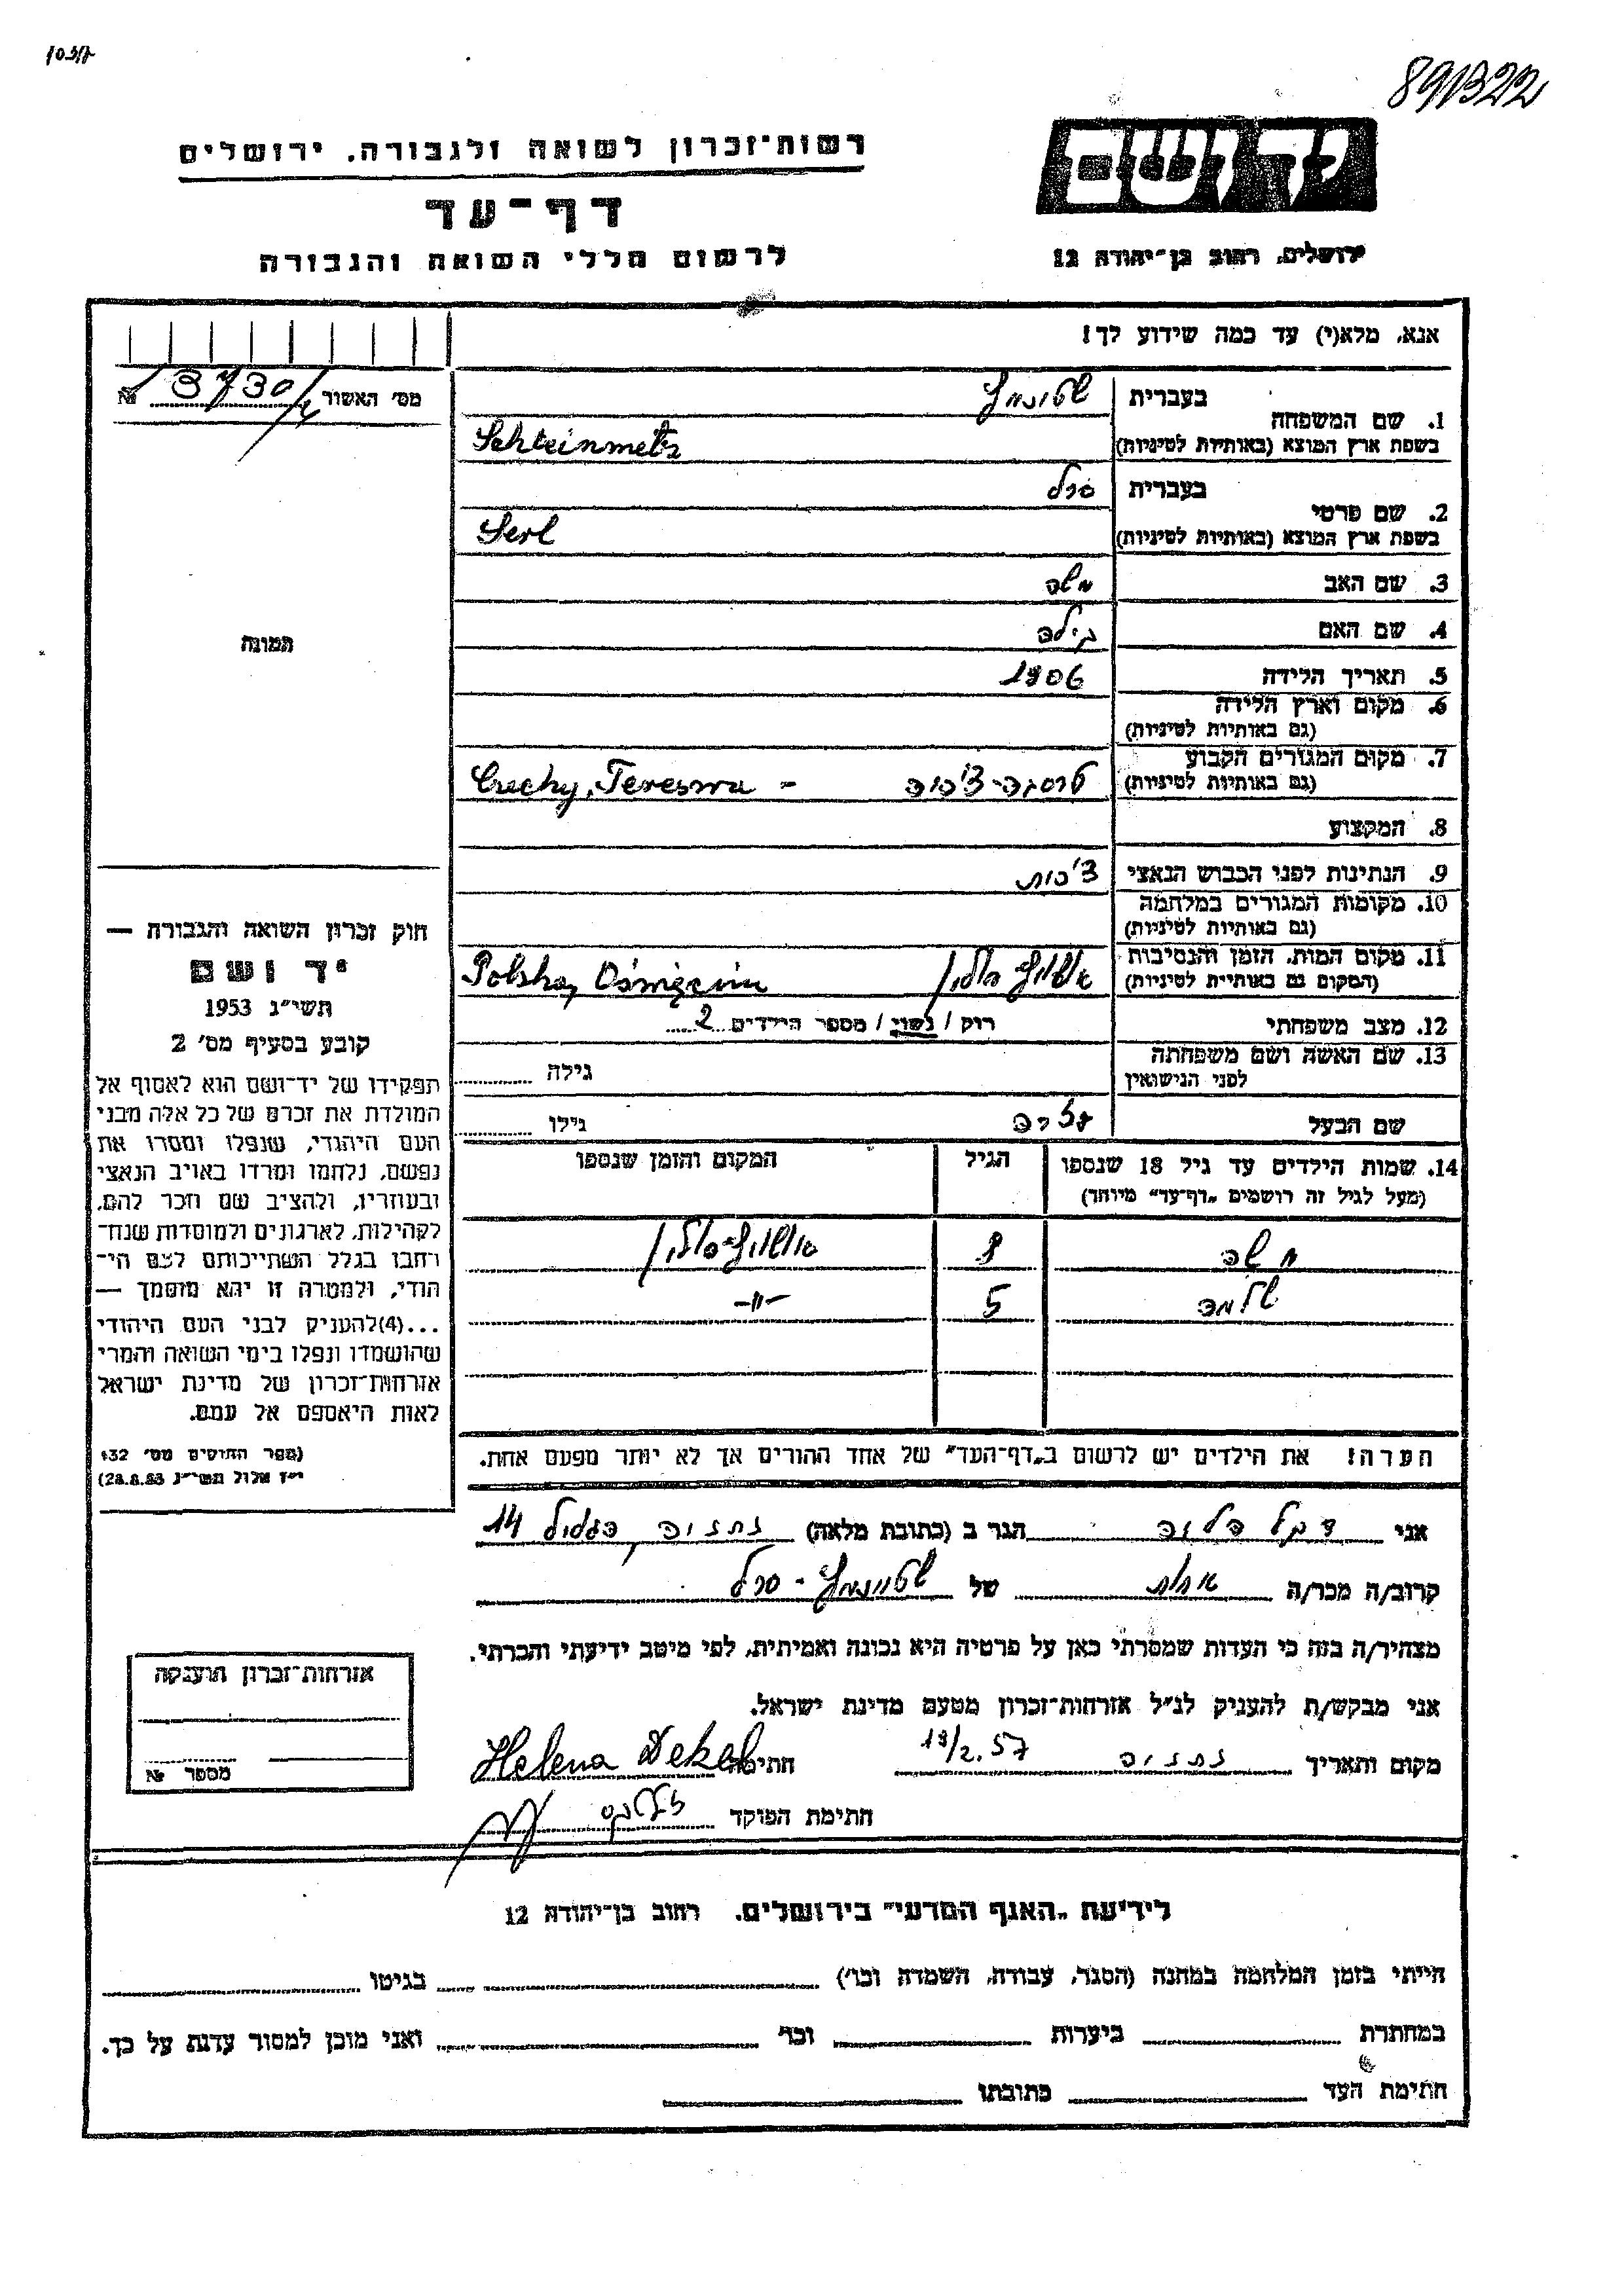 891322
יד ושם
ירושלים, רחוב בן־יהודה 12
רשות־זכרון לשואה ולגבורה, ירושלים
דף־עד
לרשום חללי השואה והגבורה
אנא, מלא(י) עד כמה שידוע לך!
מס' האשור №
1. שם המשפחה בעברית שטינמץ
בשפת ארץ המוצא (באותיות לטיניות) Schteinmetz
2. שם פרטי בעברית סרל
בשפת ארץ המוצא (באותיות לטיניות) Serl
3. שם האב משה
4. שם האם בילה
5. תאריך הלידה 1906
6. מקום וארץ הלידה
(גם באותיות לטיניות)
7. מקום המגורים הקבוע טרסבה-צ'כיה
(גם באותיות לטיניות) Czechy, Tereswa -
8. המקצוע
9. הנתינות לפני הכבוש הנאצי צ'כית
10. מקומות המגורים במלחמה
(גם באותיות לטיניות)
11. מקום המות, הזמן והנסיבות אושויץ פולין
(המקום גם באותיות לטיניות) Polska, Oświęcim
12. מצב משפחתי רוק / נשוי / מספר הילדים 2
13. שם האשה ושם משפחתה גילה
לפני הנישואין
שם הבעל גילו
14. שמות הילדים עד גיל 18 שנספו הגיל המקום והזמן שנספו
(מעל לגיל זה רושמים "דף־עד" מיוחד)
משה 8 אושויץ-פולין
שלמה 5 -"-
הערה! את הילדים יש לרשום ב"דף־העד" של אחד ההורים אך לא יותר מפעם אחת.
תמונה
חוק זכרון השואה והגבורה —
יד ושם
תשי"ג 1953
קובע בסעיף מס' 2
תפקידו של יד־ושם הוא לאסוף אל
המולדת את זכרם של כל אלה מבני
העם היהודי, שנפלו ומסרו את
נפשם, נלחמו ומרדו באויב הנאצי
ובעוזריו, ולהציב שם וזכר להם,
לקהילות, לארגונים ולמוסדות שנח־
רחבו בגלל השתייכותם לעם הי־
הודי, ולמטרה זו יהא מוסמך —
...(4) להעניק לבני העם היהודי
שהושמדו ונפלו בימי השואה והמרי
אזרחות־זכרון של מדינת ישראל
לאות היאספם אל עמם.
(ספר החוקים מס' 132
י"ז אלול תשי"ג 28.8.53)
אני דקל הלנה הגר ב (כתובת מלאה) נתניה 14
קרוב/ה מכר/ה אחות של שטיינמץ - סרל
מצהיר/ה בזה כי העדות שמסרתי כאן על פרטיה היא נכונה ואמיתית, לפי מיטב ידיעתי והכרתי.
אני מבקש/ת להעניק לנ"ל אזרחות־זכרון מטעם מדינת ישראל.
מקום ותאריך נתניה 19/2.57 חתימה Helena Dekel
חתימת הפוקד
אזרחות־זכרון הוענקה
מספר №
לידיעת "האגף המדעי" בירושלים, רחוב בן־יהודה 12
הייתי בזמן המלחמה במחנה (הסגר, עבודה, השמדה וכו') בגיטו
במחתרת ביערות וכו' ואני מוכן למסור עדות על כך.
חתימת העד כתובתו